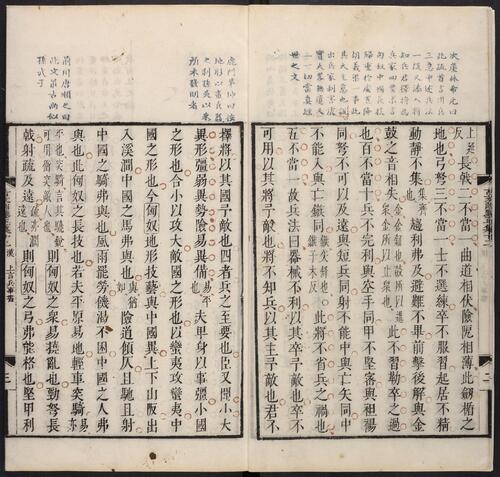 上延
反
長戟二不當一曲道相伏險阨相薄此劒楯之
地也弓弩三不當一士不選練卒不服習起居不精
動靜不集也
集齊
趨利弗及避難不畢前擊後解與金
鼓之音相失
金金鉦也鼓所以進
衆金所以止衆也
此不習勒卒之過
也百不當十兵不完利與空手同甲不堅密與袒裼
同弩不可以及遠與短兵同射不能中與亡矢同中
不能入與亡鏃同
鏃矢鋒也
此將不省兵之禍也
五不當一故兵法曰器械不利以其卒予敵也卒不
可用以其將予敵也將不知兵以其主予敵也君不
擇將以其國予敵也四者兵之至要也臣又聞小大
異形彊弱異勢險易異備
易平也
夫卑身以事彊小國
之形也合小以攻大敵國之形也以蠻夷攻蠻夷中
國之形也今匈奴地形技藝與中國異上下山阪出
入溪澗中國之馬弗與也
與猶如也
險道傾仄且馳且射
中國之騎弗與也風雨罷勞飢渴不困中國之人弗
與也此匈奴之長技也若夫平原易地輕車突騎
則匈奴之衆易撓亂也勁弩長
戟射疏及遠
則匈奴之弓弗能格也堅甲利
漢
二
三
次崖林希元曰
鹿門茅坤曰
荊川唐順之曰
孫武子